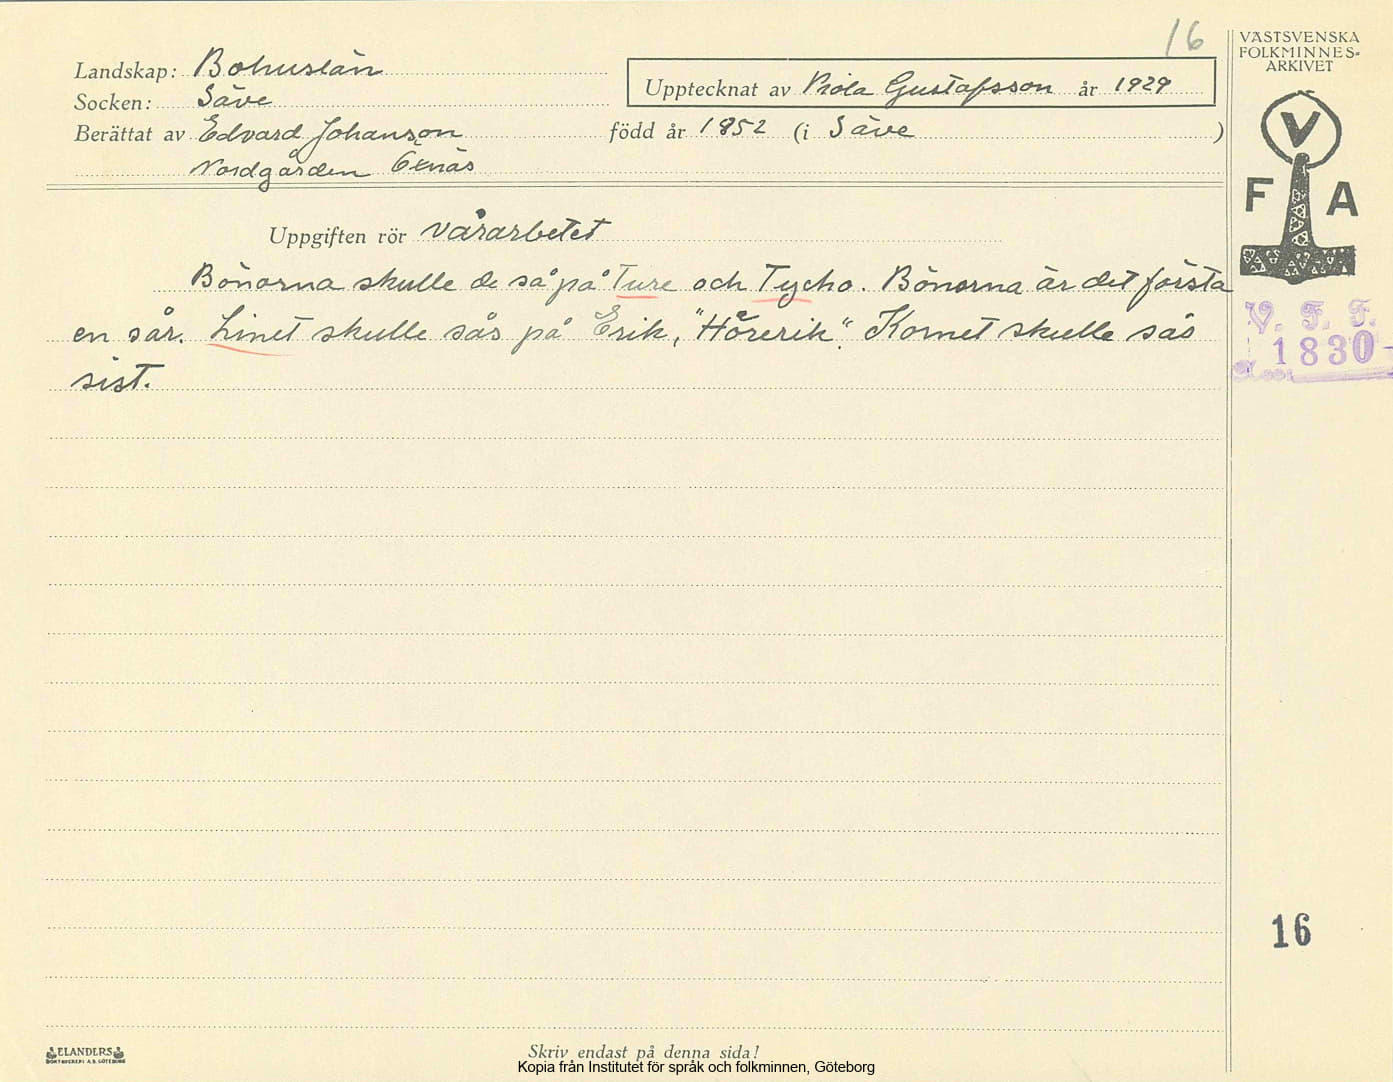 16
Landskap: Bohuslän
Socken: Säve
Upptecknat av Viola Gustafsson år 1929
Berättat av Edvard Johanson född år 1852 (i Säve )
Nordgården Öxnäs
Uppgiften rör vårarbetet
Bönorna skulle de så på Ture och Tycho. Bönorna är det första
en sår. Linet skulle sås på Erik, "Hörerik". Kornet skulle sås
sist.
VÄSTSVENSKA
FOLKMINNES-
ARKIVET
V
F A
V. F. F.
1830-
16
ELANDERS
BOKTRYCKERI A.B. GÖTEBORG
Skriv endast på denna sida!
Kopia från Institutet för språk och folkminnen, Göteborg